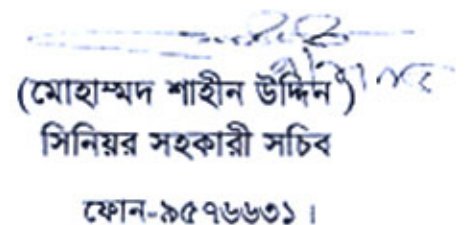 (মোহাম্মদ শাহীন উদ্দিন)
সিনিয়র সহকারী সচিব
ফোন-৯৫৭৬৬৩১।